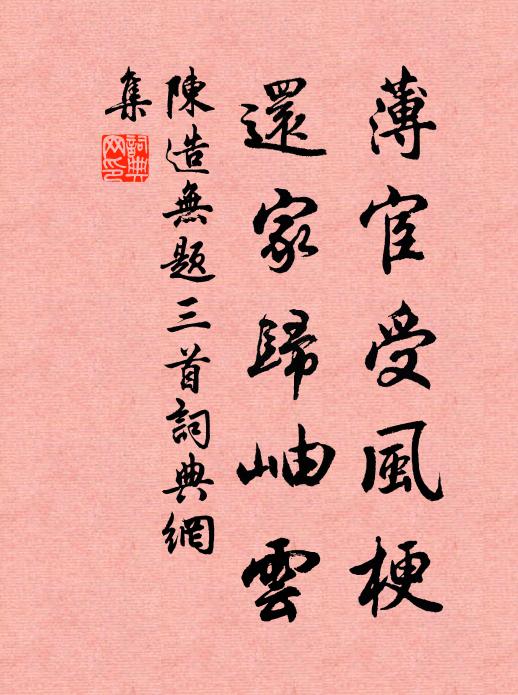 薄宦受風梗
還家歸岫雲
陳造無題三首詞典網
集
詞典
网印